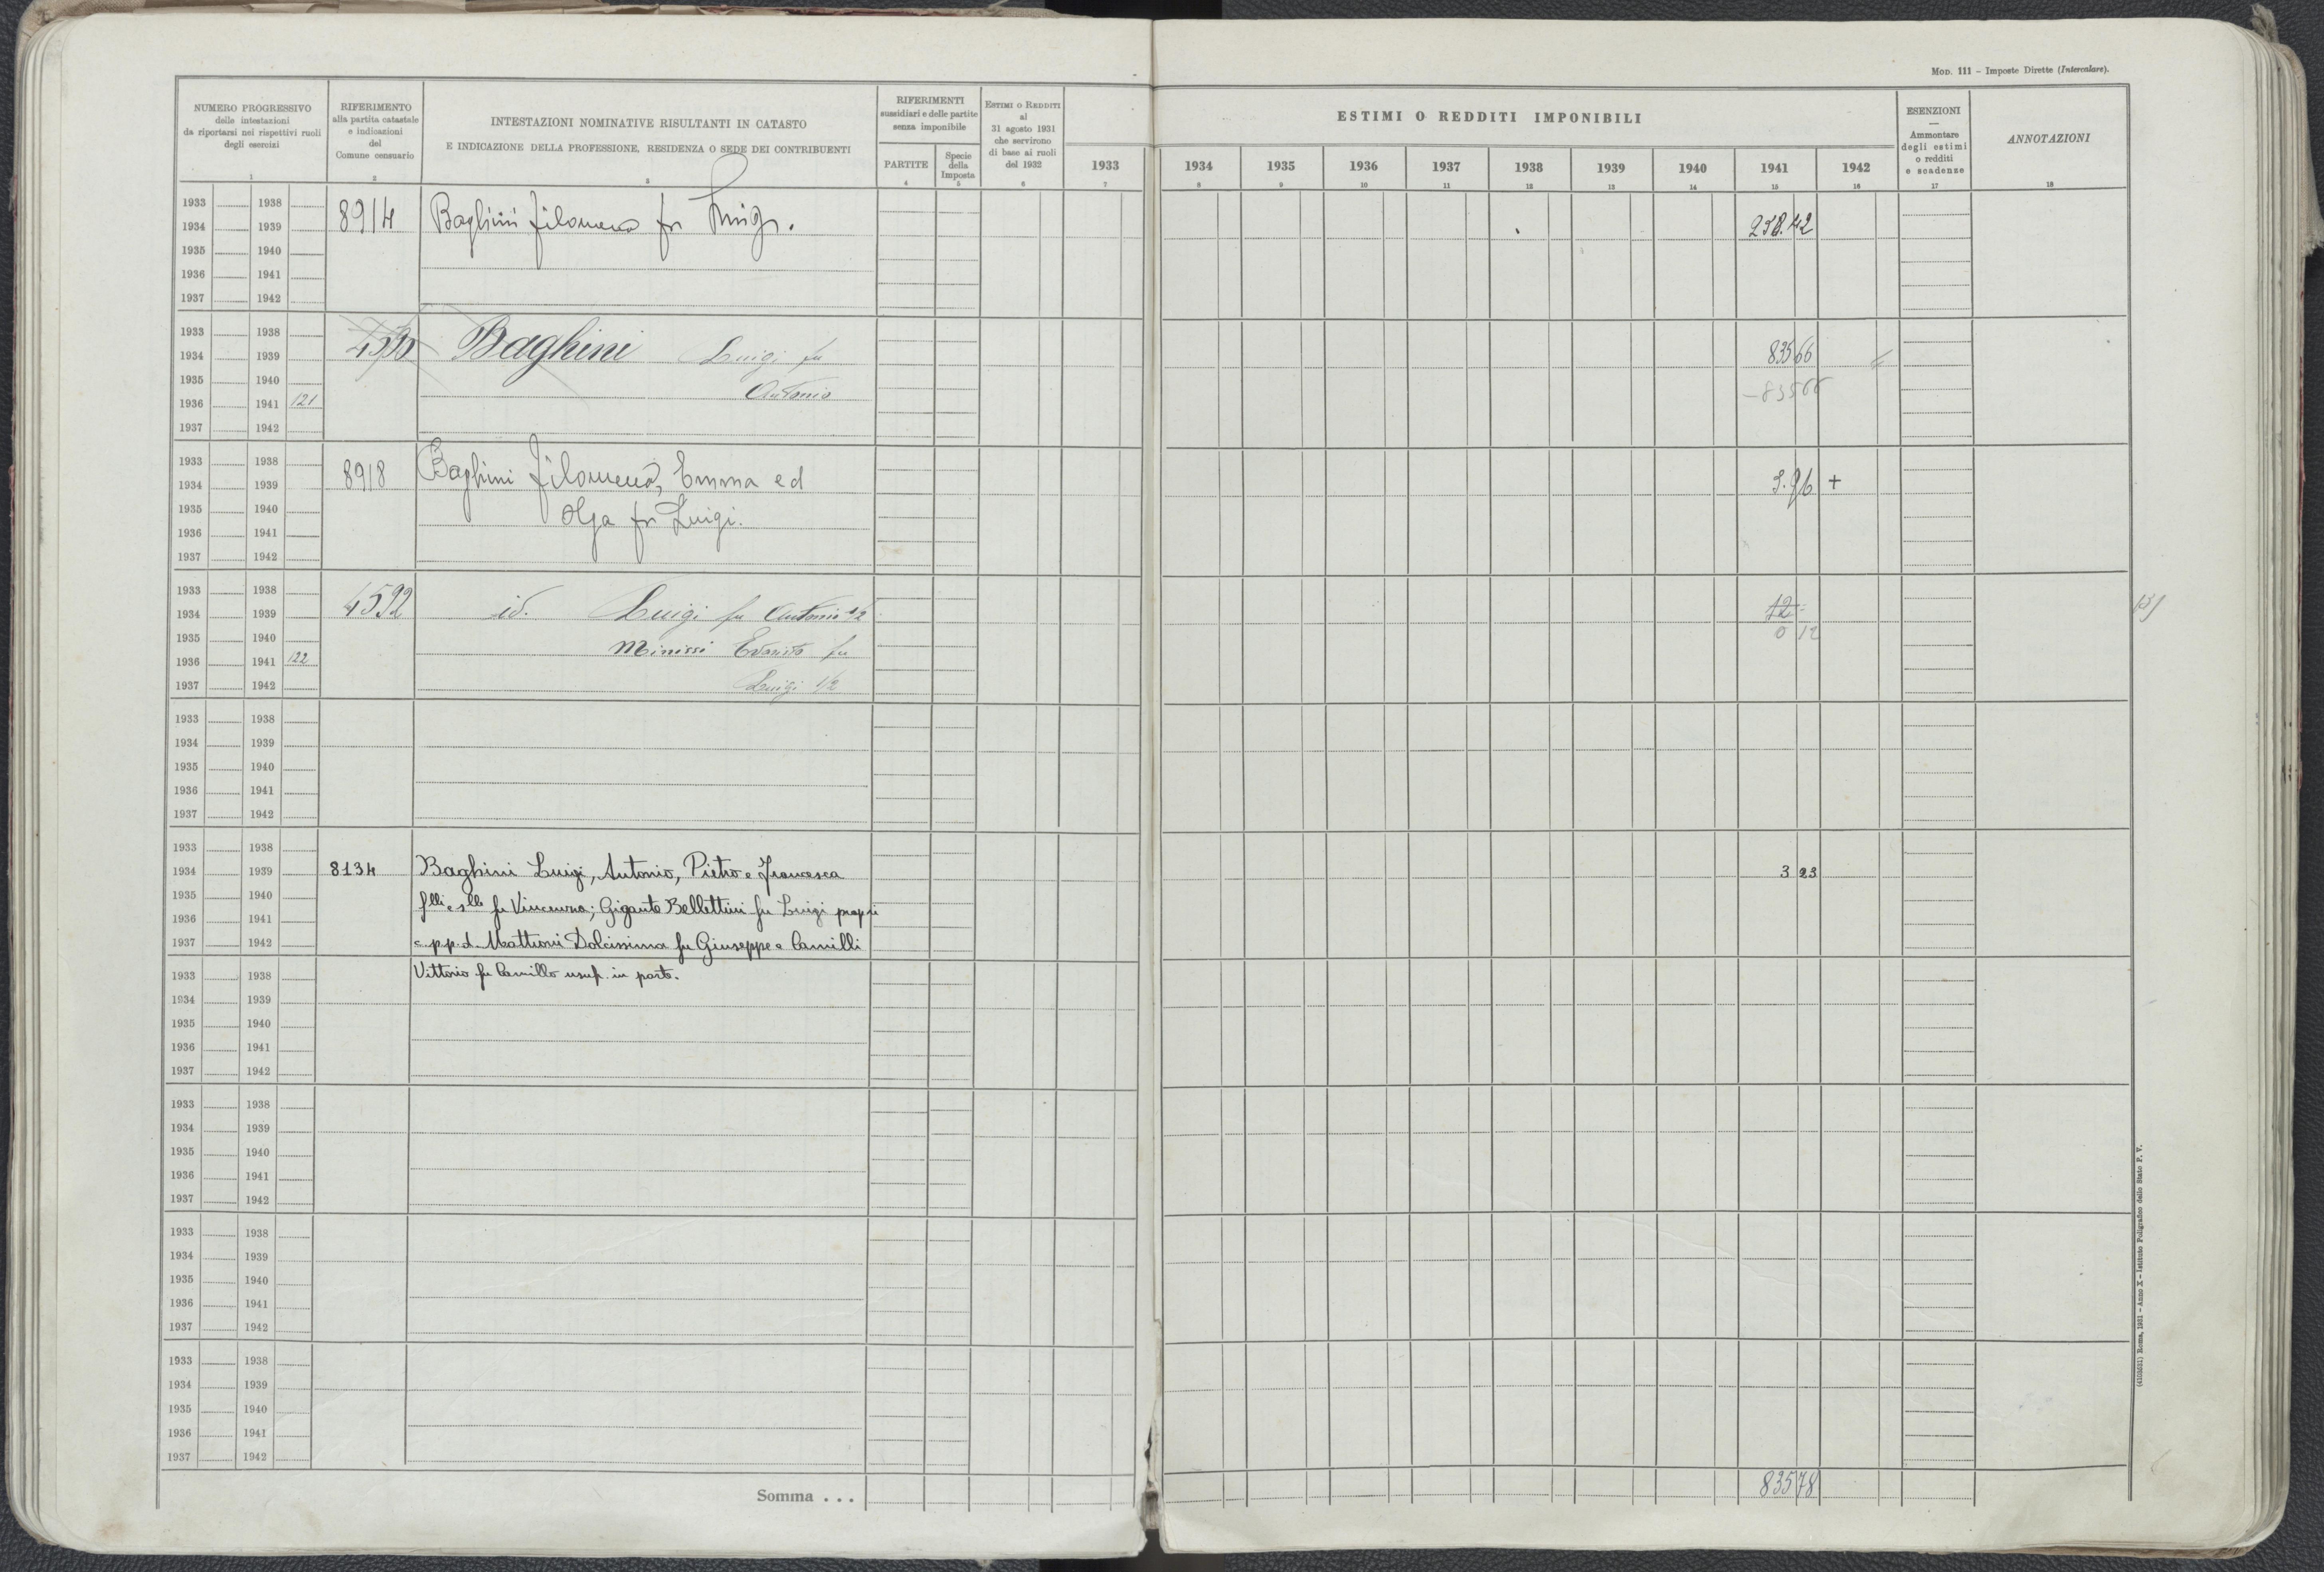 MOD. 111 – Imposte Dirette (Intercalare).
NUMERO PROGRESSIVO
delle intestazioni
da riportarsi nei rispettivi ruoli
degli esercizi
1
RIFERIMENTO
alla partita catastale
e indicazioni
del
Comune censuario
2
INTESTAZIONI NOMINATIVE RISULTANTI IN CATASTO
E INDICAZIONE DELLA PROFESSIONE, RESIDENZA O SEDE DEI CONTRIBUENTI
3
RIFERIMENTI
sussidiari e delle partite
senza imponibile
PARTITE
4
Specie
della
Imposta
5
ESTIMI O REDDITI
al
31 agosto 1931
che servirono
di base ai ruoli
del 1932
6
1933
7
ESTIMI O REDDITI IMPONIBILI
1934 1935 1936 1937 1938 1939 1940 1941 1942
8 9 10 11 12 13 14 15 16
ESENZIONI
—
Ammontare
degli estimi
o redditi
e scadenze
17
ANNOTAZIONI
18
1933 1938
1934 1939 8914 Baghini Filomena fu Luigi.
1935 1940
1936 1941
1937 1942
1933 1938
1934 1939 Baghini Luigi fu 835 66
1935 1940 Antonio – 835 66
1936 1941 121
1937 1942
1933 1938
1934 1939 8918 Baghini Filomena, Emma ed +
1935 1940 Olga fu Luigi.
1936 1941
1937 1942
1933 1938
1934 1939 4592 id. Luigi fu Antonio 1/2 12
1935 1940 Minissi fu 0 12
1936 1941 122
1937 1942 Luigi 1/2
1933 1938
1934 1939
1935 1940
1936 1941
1937 1942
1933 1938
1934 1939 8134 Baghini Luigi, Antonio, Pietro e Francesca 3 23
1935 1940 flli e slle fu Vincenzo; Gigante Bellettini fu Luigi
1936 1941
1937 1942 c. p.p. d. Mattioni Dolcissima fu Giuseppe e Camilli
1933 1938 Vittorio fu Camillo usuf. in parte.
1934 1939
1935 1940
1936 1941
1937 1942
1933 1938
1934 1939
1935 1940
1936 1941
1937 1942
1933 1938
1934 1939
1935 1940
1936 1941
1937 1942
1933 1938
1934 1939
1935 1940
1936 1941
1937 1942
Somma . . . 835 78
(4103631) Roma, 1931 – Anno X – Istituto Poligrafico dello Stato P. V.